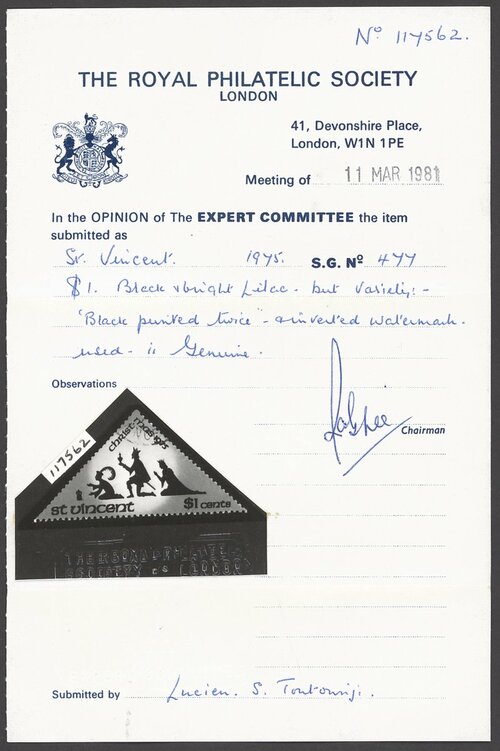 Nº 117562.
THE ROYAL PHILATELIC SOCIETY
LONDON
41, Devonshire Place,
London, W1N 1PE
Meeting of 11 MAR 1981
In the OPINION of The EXPERT COMMITTEE the item
submitted as
St. Vincent. 1975. S.G. Nº 477
$1. Black & bright Lilac - but variety:-
'Black printed twice' - & inverted watermark.
used - is Genuine.
Observations
Chairman
117562
Christmas 1975
St Vincent $1 cents
THE ROYAL PHILATELIC
SOCIETY LONDON
Submitted by Lucien. S. Toutounji.